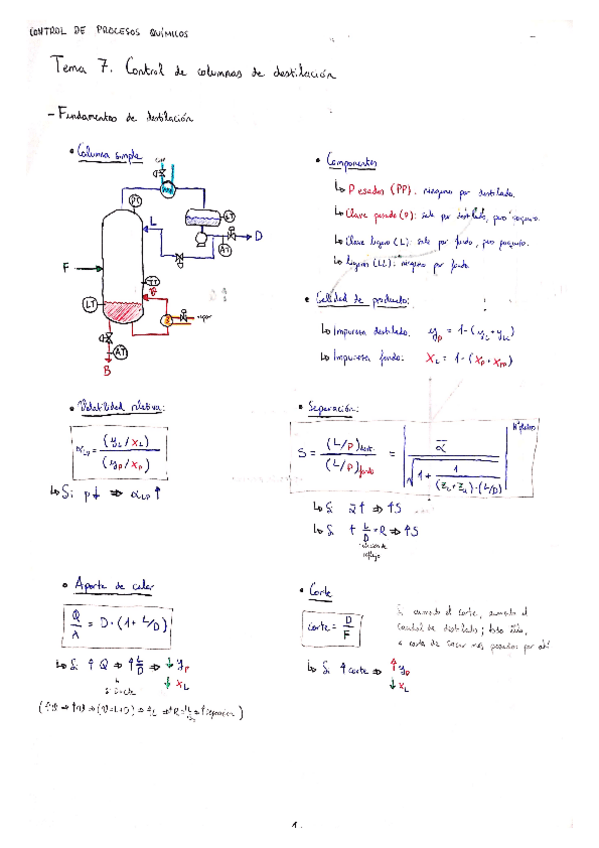 CONTROL DE PROCESOS QUÍMICOS
Tema 7. Control de columnas de destilación
- Fundamentos de destilación
• Columna simple
PC
LT
L
D
AT
F
TT
LT
V
vapor
AT
B
• Componentes
↳ Pesados (PP): ninguno por destilado.
↳ Clave pesado (P): sale por destilado, pero poquísimo.
↳ Clave ligero (L): sale por fondo, pero poquísimo.
↳ Ligeros (LL): ninguno por fondo.
• Calidad de producto:
↳ Impureza destilado: yp = 1-(yL+yLL)
↳ Impureza fondo: xL = 1-(xP+xPP)
• Volatilidad relativa:
αLP = (yL/xL) / (yP/xP)
↳ Si p↓ ⇒ αLP ↑
• Separación:
S = (L/P)dest. / (L/P)fondo = [ᾱ / √(1 + 1/((ZL+ZLL)·(L/D)))]
↳ Si ᾱ↑ ⇒ ↑S
↳ Si ↑ L/D = R ⇒ ↑S
• Aporte de calor
Q/λ = D·(1+L/D)
↳ Si ↑Q ⇒ ↑L/D ⇒ ↓yP
↓xL
• Corte
corte = D/F
Si aumento el corte, aumento el
caudal de destilado;
a costa de sacar más pesados por ahí
↳ Si ↑corte ⇒ ↑yP
↓xL
1.